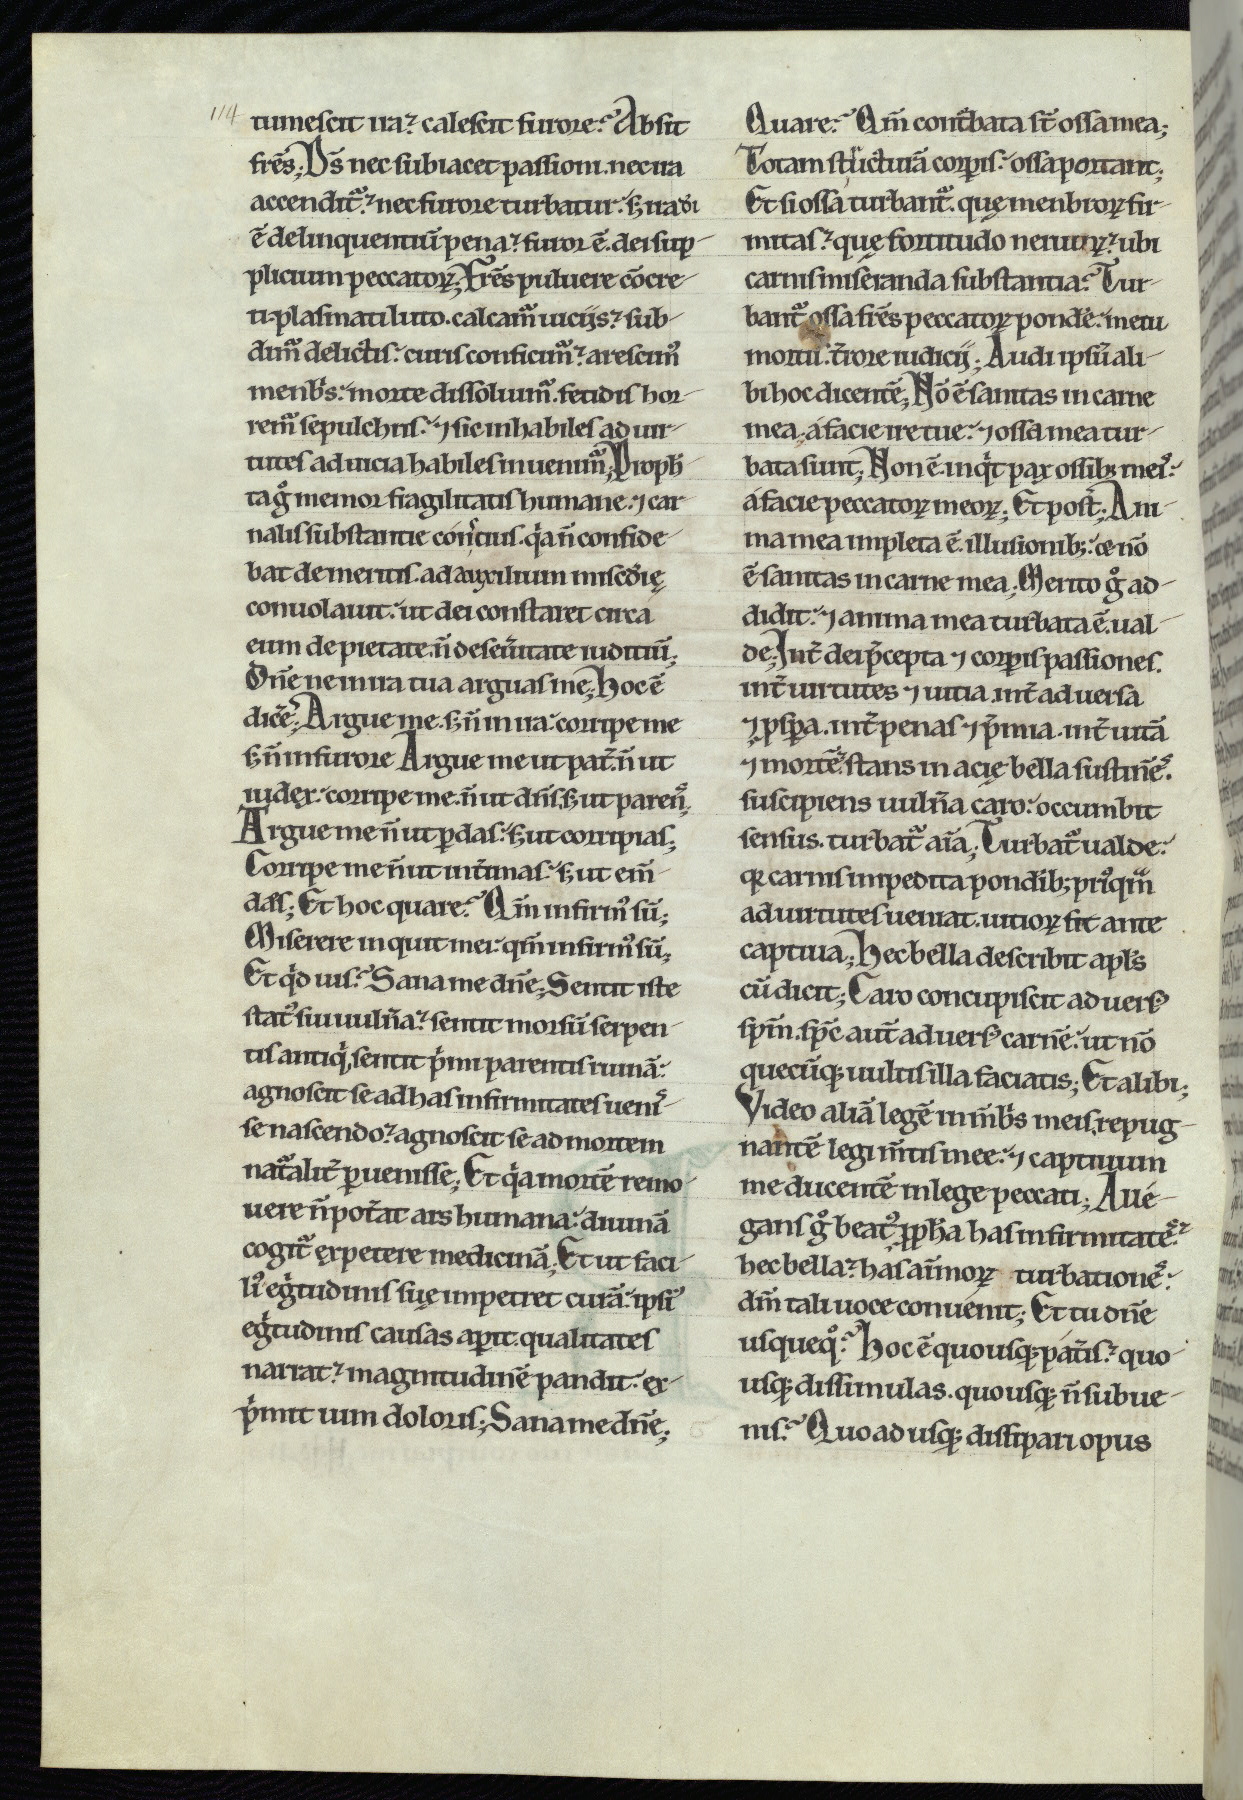 114
tumescit ira? calescit furore? Absit
frēs; Dˢ nec subiacet passioni. nec ira
accendit᷑.? nec furore turbatur. sꝫ ira dī
ē delinquentiū pena? furor ē. dei sup-
plicium peccatoꝝ; Frēs puluere cōcre-
ti. plasmati luto. calcam᷑ uicijs? sub-
dim᷑ delictis. curis conficim᷑? arescimꝰ
menbˢ. morte dissoluim᷑. fetidis hor-
rem᷑ sepulchris. ⁊ sic inhabiles ad uir-
tutes ad uicia habiles inuenim᷑; Proph̄-
ta gͦ memor fragilitatis humane. ⁊ car-
nalis substantie conscius. qͥa n̄ confide-
bat de meritis. ad auxilium misedię
conuolauit. ut dei constaret circa
eum de pietate. n̄ de seu̓itate iuditiū;
Dn̄e ne in ira tua arguas me; hoc ē
dic̓e; Argue me. sꝫ n̄ in ira. corripe me
sꝫ n̄ in furore Argue me ut pat̓. n̄ ut
iudex. corripe me. n̄ ut dn̄s. sꝫ ut parenˢ.
Argue me n̄ ut ꝑdas. sꝫ ut corripias;
Corripe me n̄ ut int̓imas. sꝫ ut em̄-
das; Et hoc quare? Qm̄ infirmꝰ sū;
Miserere inquit mei. qm̄ infirmꝰ sū;
Et qͥd uis? Sana me dn̄e; Sentit iste
statꝰ sui uuln̓a? sentit morsū serpen-
tis antiqͥ, sentit pͥmi parentis ruinā.
agnoscit se ad has infirmitates ueniˢ-
se nascendo? agnoscit se ad mortem
nat᷑alit̓ ꝑuenisse; Et qͥa mortē remo-
uere n̄ pot̓at ars humana. diuinā
cogit᷑ expetere medicinā; Et ut faci-
liꝰ egͥtudinis suę impetret curā. ipsiꝰ
egͥtudinis causas aꝑit. qualitates
narrat? magnitudinē pandit. ex-
pͥmit uim doloris; Sana me dn̄e;
Quare? Qm̄ cont᷑bata st̄ ossa mea;
Totam structurā corꝑis. ossa portant;
Et si ossa turbant᷑. quę menbroꝝ fir-
mitas? quę fortitudo neruoꝝ? ubi
carnis miseranda substantia? Tur-
bant᷑ ossa frēs peccatoꝝ pond̓e. metu
mortis. t̓rore iudicij; Audi ipsū ali-
bi hoc dicentē; Nō ē sanitas in carne
mea. á facie ire tue. ⁊ ossa mea tur-
bata sunt; Non ē. inqͥt pax ossibꝫ meiˢ.
á facie peccatoꝝ meoꝝ; Et post; Ani-
ma mea impleta ē. illusionibꝫ. ⁊ nō
ē sanitas in carne mea; Merito gͦ ad-
didit. ⁊ anima mea turbata ē. ual-
de; Int̓ dei pͨcepta ⁊ corꝑis passiones.
int̓ uirtutes ⁊ uitia. int̓ aduersa
⁊ ꝓsꝑa. int̓ penas ⁊ pͥmia. int̓ uitā
⁊ mortē. stans in acię bella sustinēˢ.
suscipiens uuln̓a caro. occumbit
sensus. turbat᷑ aīa; Turbat᷑ ualde.
qꝛ carnis impedita pond̓ibꝫ; priꝰqͣm
ad uirtutes ueniat. uitioꝝ fit ante
captiua; Hec bella describit apl̄s
cū dicit; Caro concupiscit aduersꝰ
spm̄. spc̄ aut̄ aduersꝰ carnē. ut nō
quecūqꝫ uultis illa faciatis; Et alibi;
Video aliā legē in mͤbˢ meis, repug-
nantē legi m̄tis mee. ⁊ captiuum
me ducentē in lege peccati; Allé-
gans gͦ beatꝰ ꝓph̄a has infirmitatēˢ?
hec bella? has animoꝝ turbationēˢ.
dm̄ tali uoce conuenit; Et tu dn̄e
usquequͦ? Hoc ē quousqꝫ pat̓is? quo-
usqꝫ dissimulas. quousqꝫ n̄ subue-
nis? Quoadusqꝫ dissipari opus